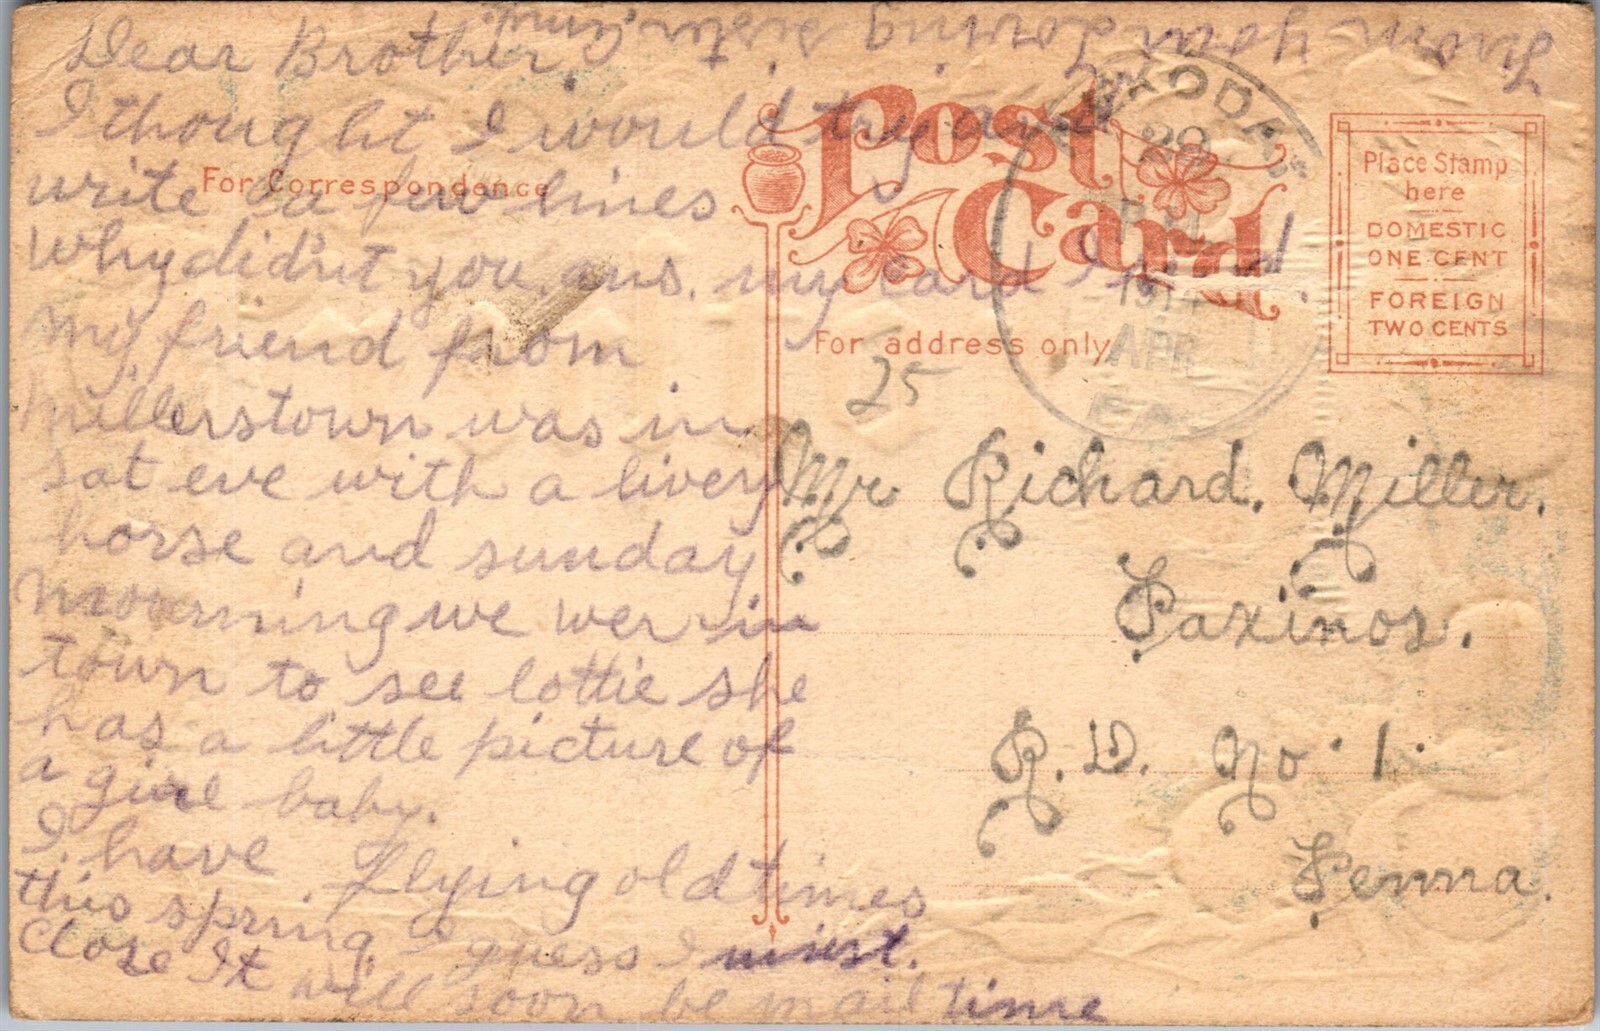 Dear Brother,
I thought I would try and
write a few lines
Why did'nt you ans. my card I send.
My friend from
Millerstown was in
sat eve with a livery
horse and sunday
mourning we wer in
town to see lottie she
has a little picture of
a girl baby.
I have flying old times
this spring. I guess I must.
close It will soon be mail time
From your Loving sister
For Correspondence
Post
Card
For address only
Place Stamp
here
DOMESTIC
ONE CENT
FOREIGN
TWO CENTS
29
1914
APR
PA.
25
Mr Richard. Miller.
Paxinos.
R. D. No. 1.
Penna.